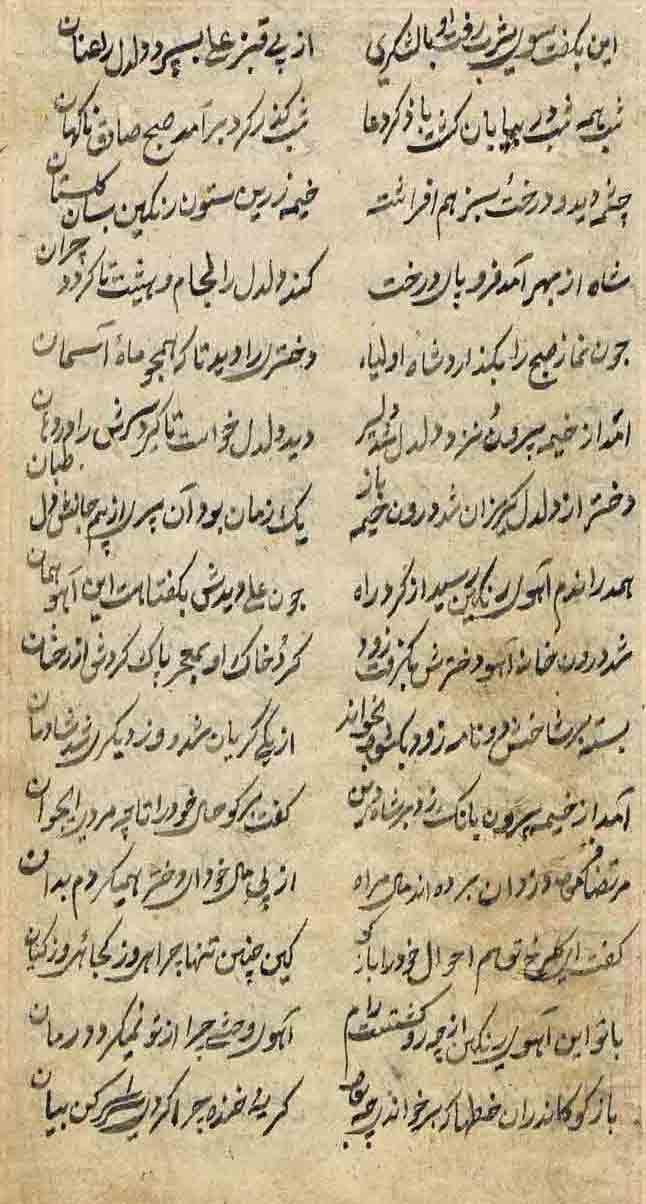 این بگفت سوی یثرب رفت او با لشکری از پی قنبر علی بسپرد دلدل را عنان
شب همه شب در بیابان کرد با ذکر دعا شب گذر کرد برآمد صبح صادق ناگهان
چشمه دید و درخت سبز هم افراشته خیمه زرین ستون رنگین بسان گلستان
شاه از بهر آمد فرو پای درخت کند دلدل را لجام و بهشت تا گردد چران
چون نماز صبح را بگذارد شاه اولیاء دختری را دید ناگه همچو ماه آسمان
آمد از خیمه بیرون نزد دلدل شد دلیر دید دلدل خواست تا گیرد سرش را در دهان
دختر از دلدل گریزان شد درون خیمه باز یک زمان بود آن پس از بیم جانش دل طپان
همدران دم آهوی رنگین رسید از گرد راه چون علی دیدش بگفتا هست این آهو همان
شد درون خانه آهو دخترش بگرفت زود گرد خاک او بمعجر پاک کردش از رخان
بسته بر شاخش دو نامه زود بگشود بخواند از یکی گریان شد و از دیگری شد شادمان
آمد از خیمه بیرون بانگ زد بر شاه دین گفت برگو حال خود را تا چه مردی ای جوان
مرتضا گفتا که دزدان برده اند مال مراه از پی مال خود ای دختر همیگردم بدان
گفت ای گلرخ تو هم احوال خود را باز گو کین چنین تنها چرا امروز کجا امروز کیان
با تو این آهوی رنگین از چه رو گشتست رام آهوی وحشی چرا از تو نمیگردد رمان
باز گو کاندران خطها که برخواندی چه بود گریه خنده چرا کردی این سر کن بیان